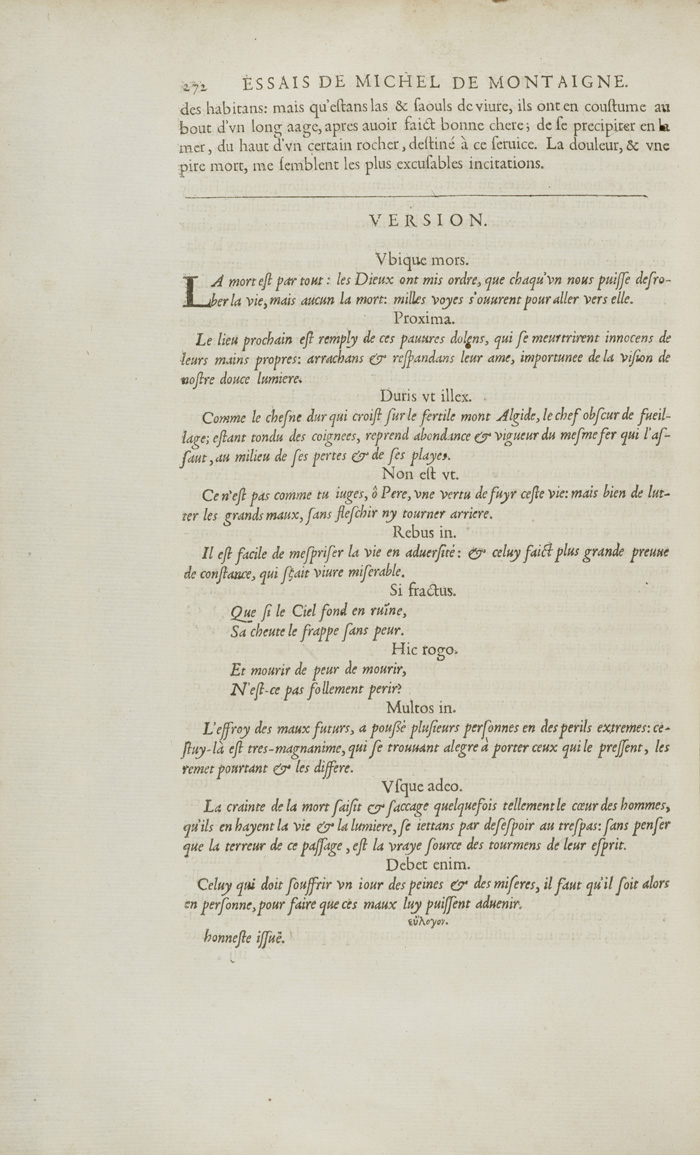 272 ESSAIS DE MICHEL DE MONTAIGNE.
des habitans: mais qu'eſtans las & ſaouls de viure, ils ont en couſtume au
bout d'vn long aage, apres auoir faict bonne chere; de ſe precipiter en la
mer, du haut d'vn certain rocher, deſtiné à ce ſeruice. La douleur, & vne
pire mort, me ſemblent les plus excuſables incitations.
VERSION.
Vbique mors.
LA mort eſt par tout : les Dieux ont mis ordre, que chaqu'vn nous puiſſe deſro-
ber la vie, mais aucun la mort: milles voyes s'ouurent pour aller vers elle.
Proxima.
Le lieu prochain eſt remply de ces pauures dolens, qui ſe meurtrirent innocens de
leurs mains propres: arrachans & reſpandans leur ame, importunee de la viſion de
noſtre douce lumiere.
Duris vt illex.
Comme le cheſne dur qui croiſt ſur le fertile mont Algide, le chef obſcur de fueil-
lage; eſtant tondu des coignees, reprend abondance & vigueur du meſme fer qui l'aſ-
ſaut, au milieu de ſes pertes & de ſes playes.
Non eſt vt.
Ce n'eſt pas comme tu iuges, ô Pere, vne vertu de fuyr ceſte vie: mais bien de lut-
ter les grands maux, ſans fleſchir ny tourner arriere.
Rebus in.
Il eſt facile de meſpriſer la vie en aduerſité: & celuy faict plus grande preuue
de conſtance, qui ſçait viure miſerable.
Si fractus.
Que ſi le Ciel fond en ruïne,
Sa cheute le frappe ſans peur.
Hic rogo.
Et mourir de peur de mourir,
N'eſt-ce pas follement perir?
Multos in.
L'effroy des maux futurs, a pouſſé pluſieurs perſonnes en des perils extremes: ce-
ſtuy-là eſt tres-magnanime, qui ſe trouuant alegre à porter ceux qui le preſſent, les
remet pourtant & les differe.
Vſque adeo.
La crainte de la mort ſaiſit & ſaccage quelquefois tellement le cœur des hommes,
qu'ils en hayent la vie & la lumiere, ſe iettans par deſeſpoir au treſpas: ſans penſer
que la terreur de ce paſſage, eſt la vraye ſource des tourmens de leur eſprit.
Debet enim.
Celuy qui doit ſouffrir vn iour des peines & des miſeres, il faut qu'il ſoit alors
en perſonne, pour faire que ces maux luy puiſſent aduenir.
εὔλογον.
honneſte iſſuë.